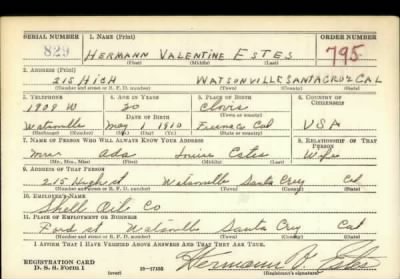 SERIAL NUMBER 1. NAME (Print) ORDER NUMBER
829 HERMANN VALENTINE ESTES 795
(First) (Middle) (Last)
2. ADDRESS (Print)
215 HIGH WATSONVILLE SANTA CRUZ CAL
(Number and street or R. F. D. number) (Town) (County) (State)
3. TELEPHONE 4. AGE IN YEARS 5. PLACE OF BIRTH 6. COUNTRY OF CITIZENSHIP
1908 W 30 Clovis
DATE OF BIRTH (Town or county)
Watsonville May 1 1910 Fresno Cal USA
(Exchange) (Number) (Mo.) (Day) (Yr.) (State or country)
7. NAME OF PERSON WHO WILL ALWAYS KNOW YOUR ADDRESS 8. RELATIONSHIP OF THAT PERSON
Mrs Ada Louise Estes Wife
(Mr., Mrs., Miss) (First) (Middle) (Last)
9. ADDRESS OF THAT PERSON
215 High st Watsonville Santa Cruz Cal
(Number and street or R. F. D. number) (Town) (County) (State)
10. EMPLOYER'S NAME
Shell Oil Co
11. PLACE OF EMPLOYMENT OR BUSINESS
st Watsonville Santa Cruz Cal
(Number and street or R. F. D. number) (Town) (County) (State)
I AFFIRM THAT I HAVE VERIFIED ABOVE ANSWERS AND THAT THEY ARE TRUE.
REGISTRATION CARD
D. S. S. Form 1 (over) 16-17105 Hermann V. Estes
(Registrant's signature)